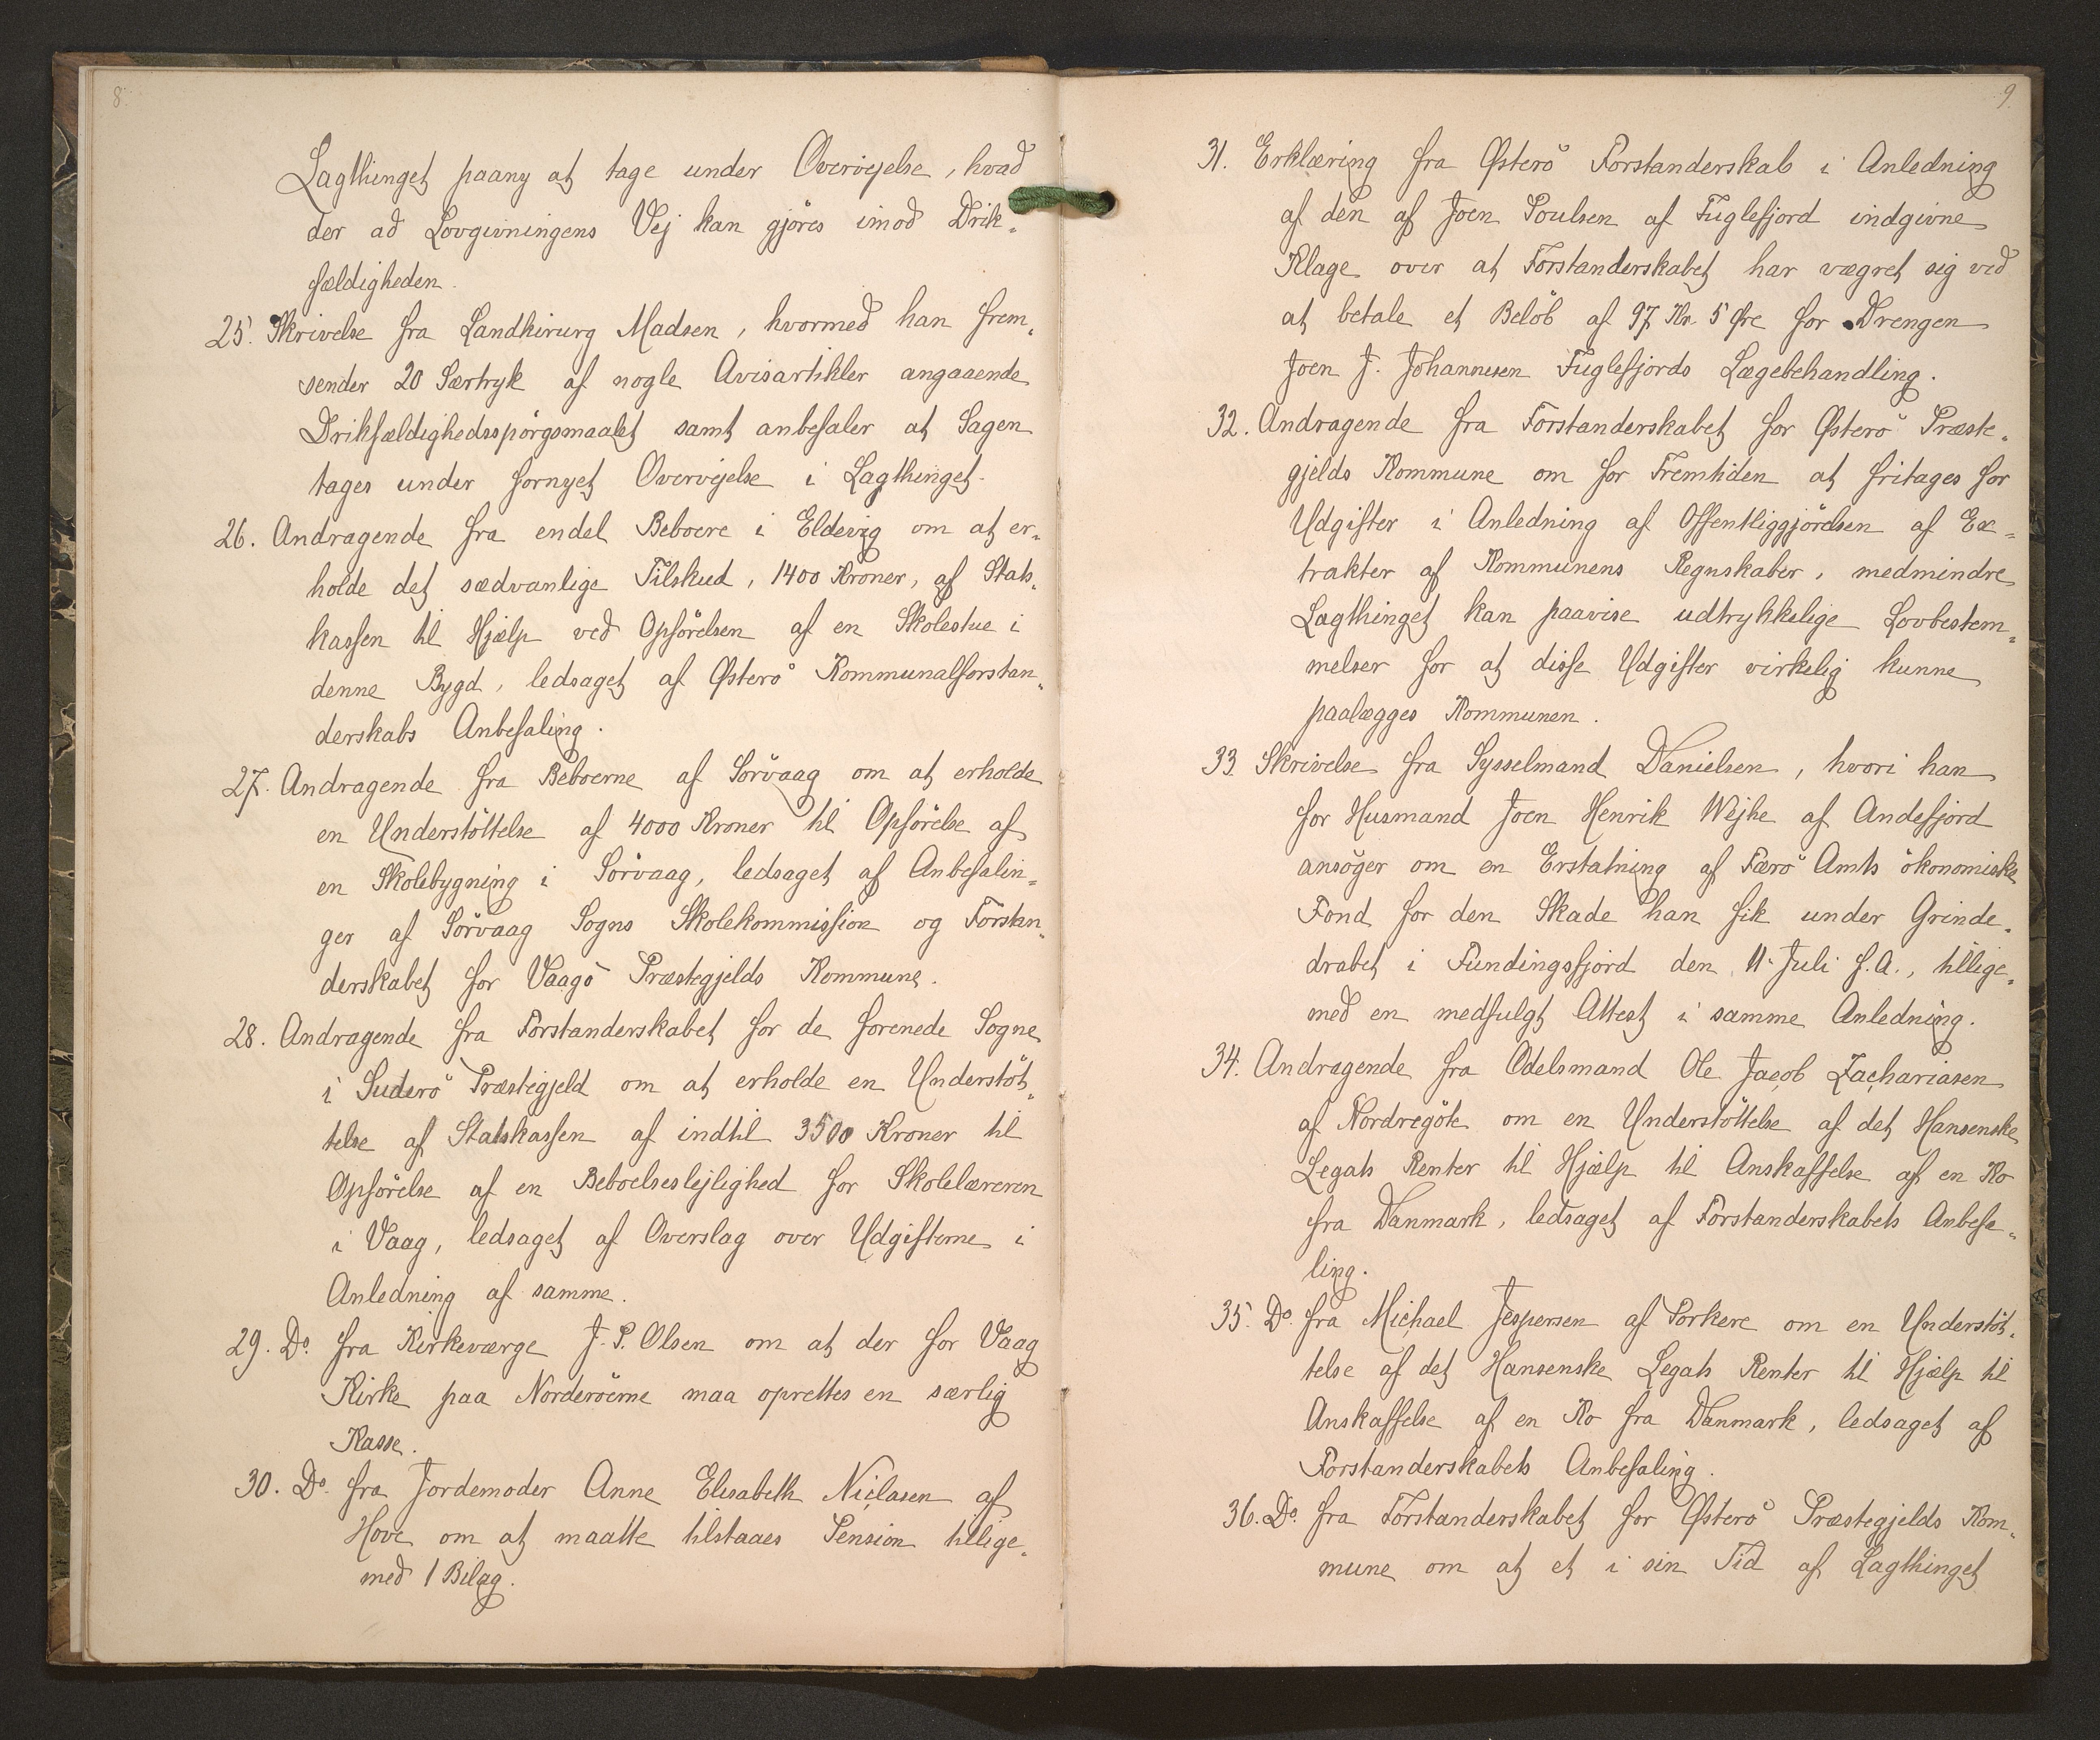 8.
Lagthinget paany at tage under Overvejelse, hvad
der ad Lovgivningens Vej kan gjöres imod Drik-
fældigheden.
25. Skrivelse fra Landkirurg Madsen, hvormed han frem-
sender 20 Særtryk af nogle Avisartikler angaaende
Drikfældighedsspörgsmaalet samt anbefaler at Sagen
tages under fornyet Overvejelse i Lagthinget.
26. Andragende fra endel Beboere i Eldevig om at er-
holde det sædvanlige Tilskud, 1400 Kroner, af Stats-
kassen til Hjælp ved Opförelsen af en Skolestue i
denne Bygd, ledsaget af Østerö Kommunalforstan-
derskabs Anbefaling.
27. Andragende fra Beboerne af Sörvaag om at erholde
en Understöttelse af 4000 Kroner til Opförelse af
en Skolebygning i Sörvaag, ledsaget af Anbefalin-
ger af Sörvaag Sogns Skolekommission og Forstan-
derskabet for Vaagö Præstegjelds Kommune.
28. Andragende fra Forstanderskabet for de forenede Sogne
i Suderö Præstegjeld om at erholde en Understöt-
telse af Statskassen af indtil 3500 Kroner til
Opförelse af en Beboelseslejlighed for Skolelæreren
i Vaag, ledsaget af Overslag over Udgifterne i
Anledning af samme.
29. Do. fra Kirkeværge J. P. Olsen om at der for Vaag
Kirke paa Norderöerne maa oprettes en særlig
Kasse.
30. Do. fra Jordemoder Anne Elisabeth Niclasen af
Hove om at maatte tilstaaes Pension tillige-
med 1 Bilag.
9.
31. Erklæring fra Østerö Forstanderskab i Anledning
af den af Joen Poulsen af Fuglefjord indgivne
Klage over at Forstanderskabet har vægret sig ved
at betale et Belöb af 97 Kr. 5 Øre for Drengen
Joen J. Johannesen Fuglefjords Lægebehandling.
32. Andragende fra Forstanderskabet for Østerö Præste-
gjelds Kommune om for Fremtiden at fritages for
Udgifter i Anledning af Offentliggjördsen af Ex-
trakter af Kommunens Regnskaber, medmindre
Lagthinget kan paavise udtrykkelige Lovbestem-
melser for at disse Udgifter virkelig kunne
paalægges Kommunen.
33 Skrivelse fra Sysselmand Danielsen, hvori han
for Husmand Joen Henrik Wejhe af Andefjord
ansöger om en Erstatning af Færö Amts ökonomiske
Fond for den Skade han fik under Grinde-
drabet i Fundingsfjord den 11. Juli f.A., tillige-
med en medfulgt Attest i samme Anledning.
34. Andragende fra Odelsmand Ole Jacob Zachariasen
af Nordregöte om en Understöttelse af det Hansenske
Legats Renter til Hjælp til Anskaffelse af en Ko
fra Danmark, ledsaget af Forstanderskabets Anbefa-
ling.
35. Do. fra Michael Jespersen af Porkere om en Understöt-
telse af det Hansenske Legats Renter til Hjælp til
Anskaffelse af en Ko fra Danmark, ledsaget af
Forstanderskabets Anbefaling.
36. Do. fra Forstanderskabet for Østerö Præstegjelds Kom-
mune om at et i sin Tid af Lagthinget